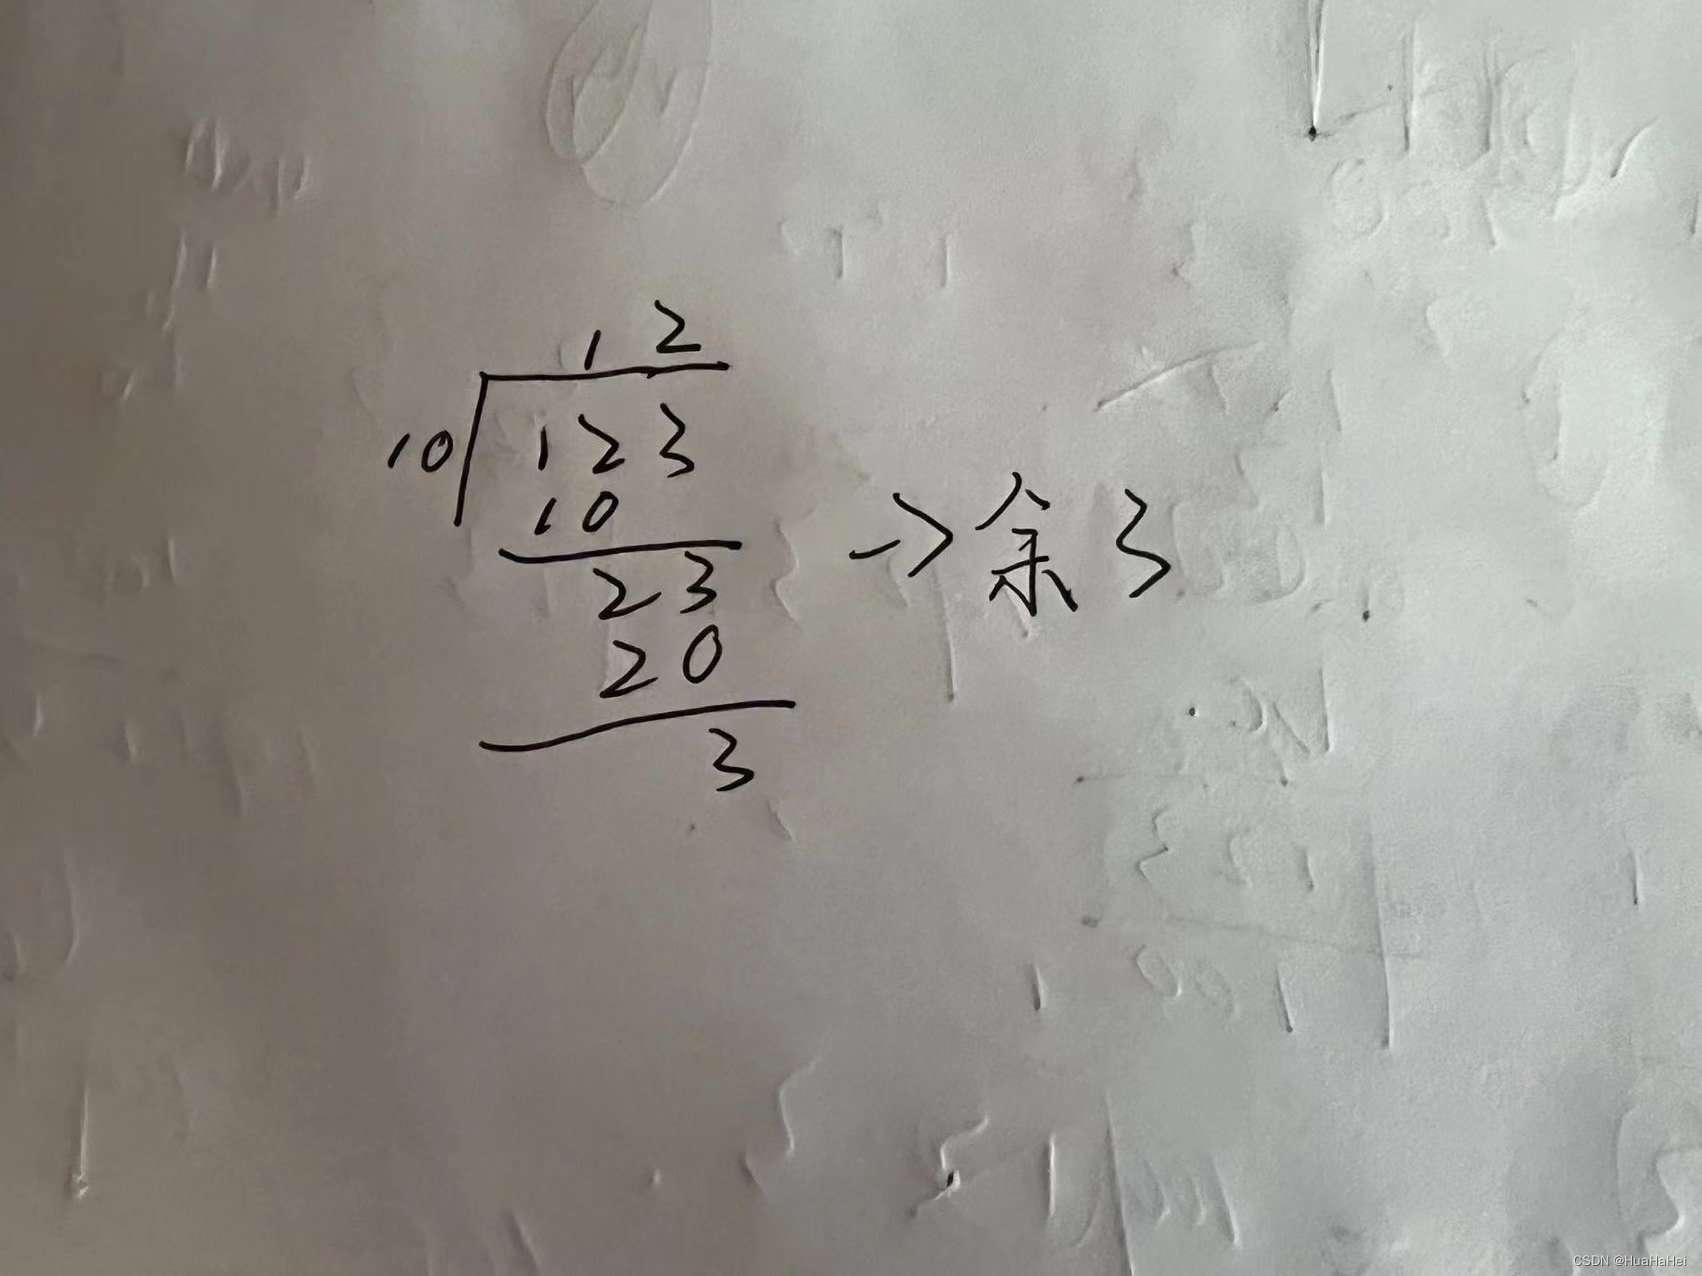 12
10 123
10
23 → 余3
20
3
CSDN @HuaHaHei